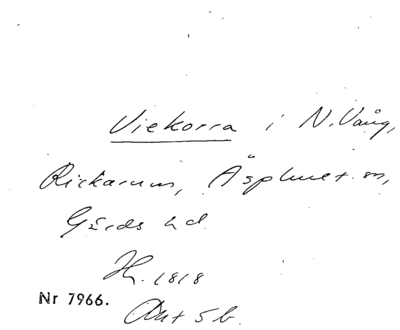 Viekorra i N. Vång,
Rickarum, Äsphult sn,
Gärds hd
H. 1818
Nr 7966.
Akt 5b.